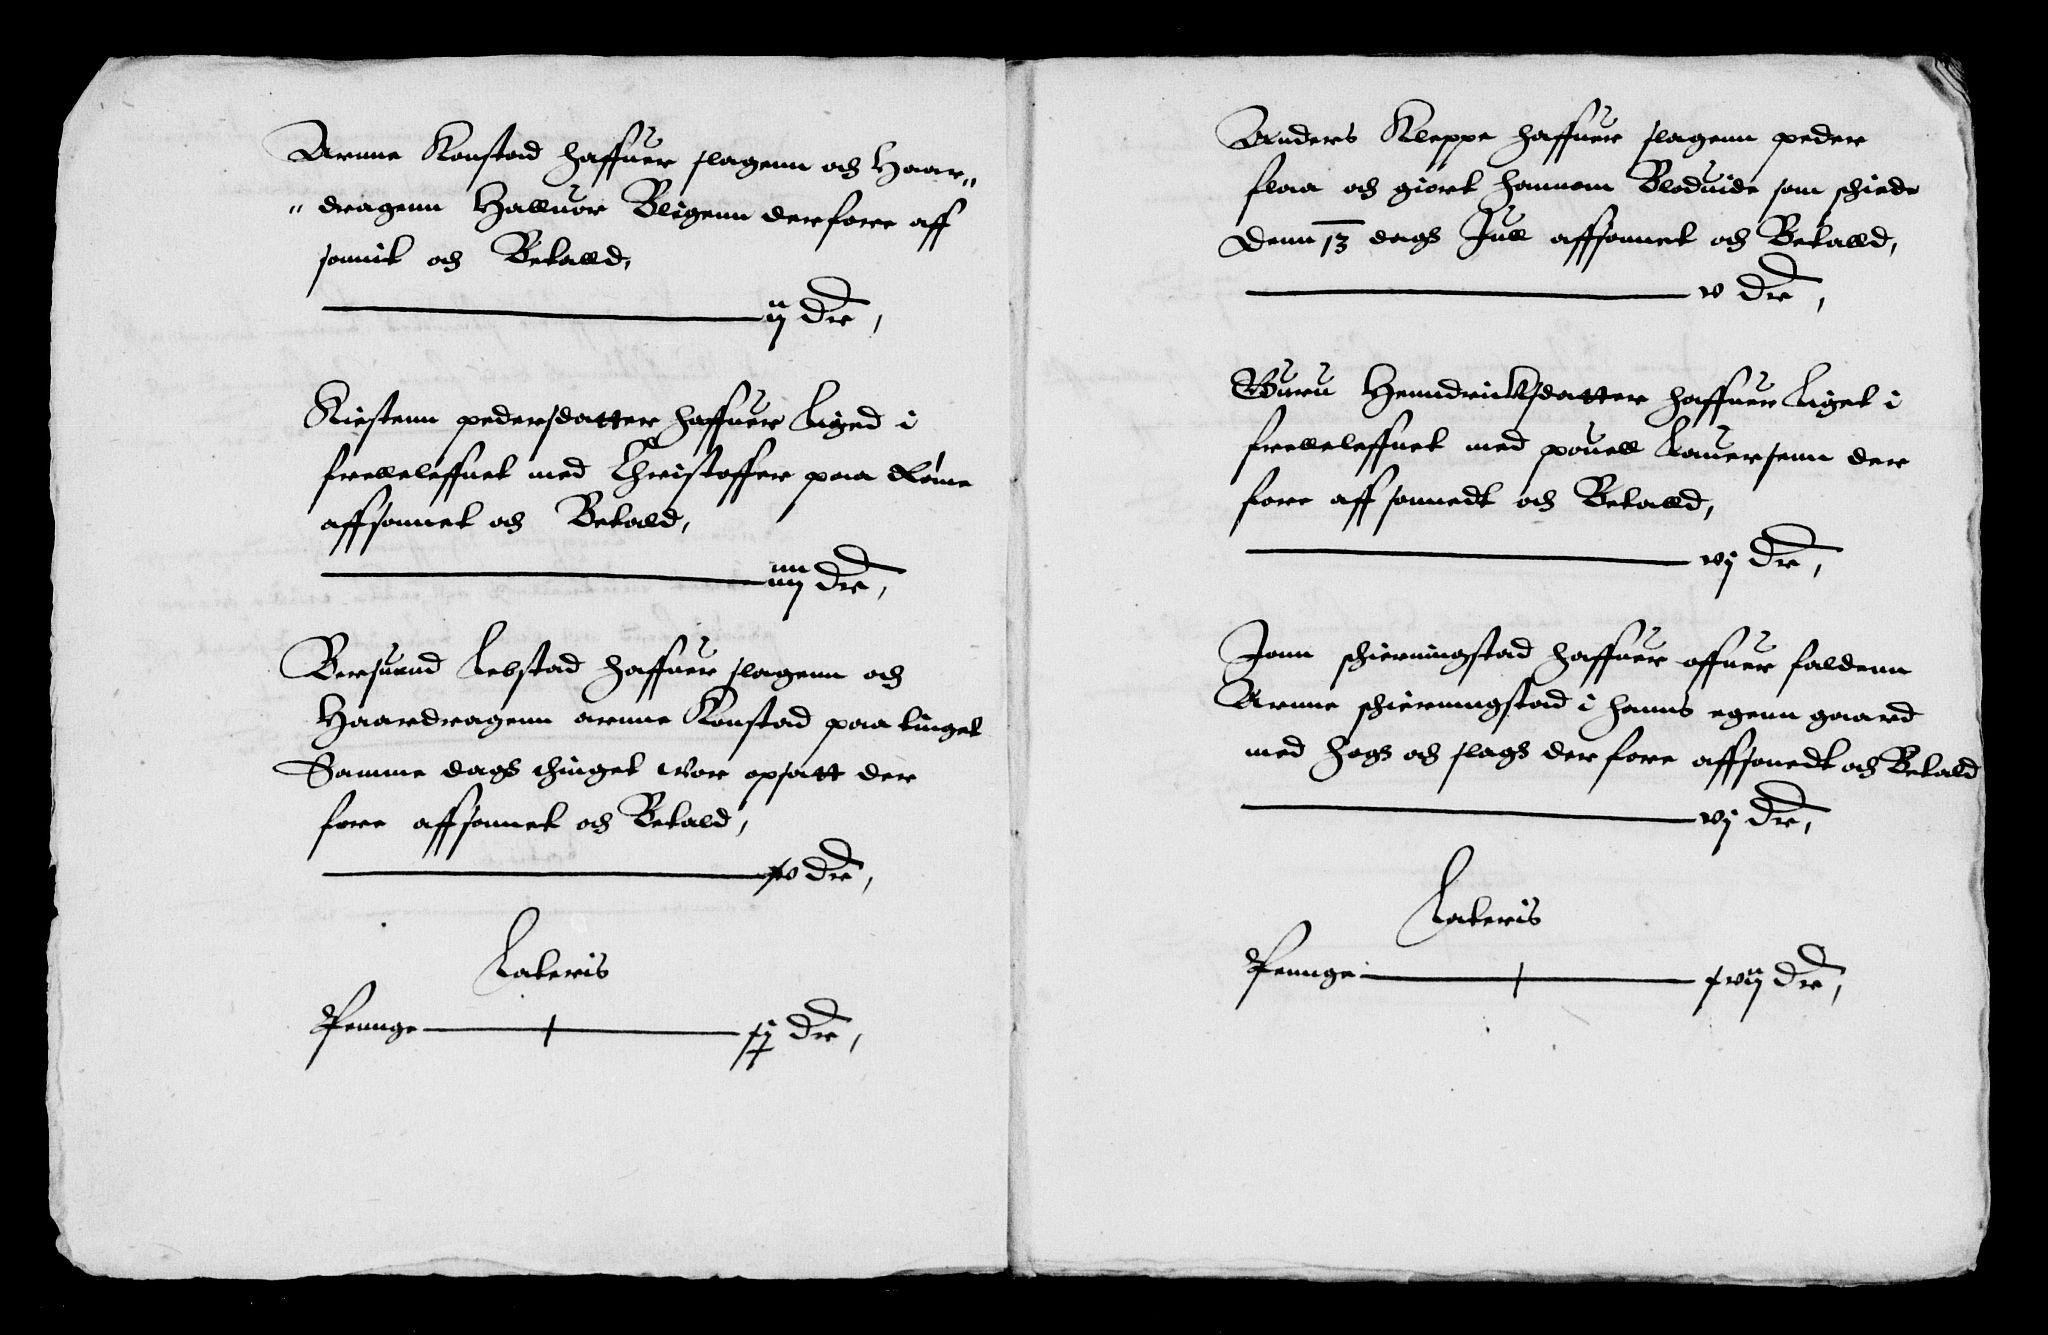 Arnne Konstad haffuer slagenn och Haar„
„dragenn Halluor Bligenn derfore aff
sonnit och Betalld,
ij dlr,
Kirstenn pedersdatter haffuer Liged i
frelleleffnet med Christoffer paa
affsonnet och Betald,
iiij dlr,
Bersuend Lebstad haffuer slagenn och
Haardragenn arnne Konstad paa tinget
Samme dags thinget wor opsatt der
fore affsonnet och Betald,
v dlr,
Lateris
Pennge xj dlr,
Anders Kleppe haffuer slagenn peder
flaa och giort hannom Bloduide som schiede
Denn 13 dags Jull affsonnet och Betalld,
v dlr,
Guru Henndricksdatter haffuer Liget i
frelleleffnet med pouell Lauersenn der
fore aff sonnedt och Betalld,
vj dlr,
Jonn schierningstad haffuer offuer faldenn
Arnne schierningstad i hanns egenn gaard
med hogs och slags der fore affsonedt och Betald
vj dlr,
Lateris
Pennge xvij dlr,